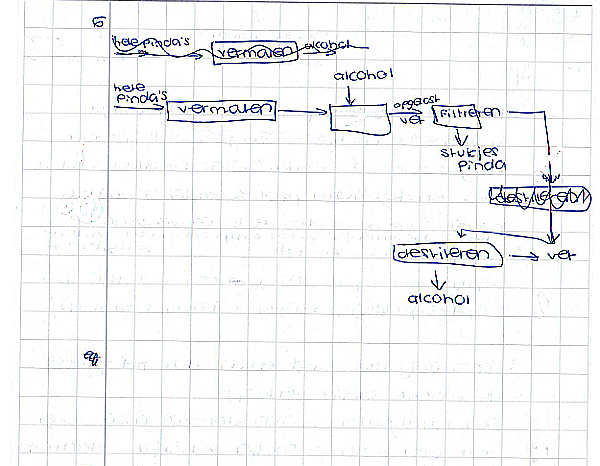 5
hele pinda's vermalen alcohol
alcohol
hele
pinda's vermalen
opgelost
vet filtreren
stukjes
pinda
destilleren
destileren vet
alcohol